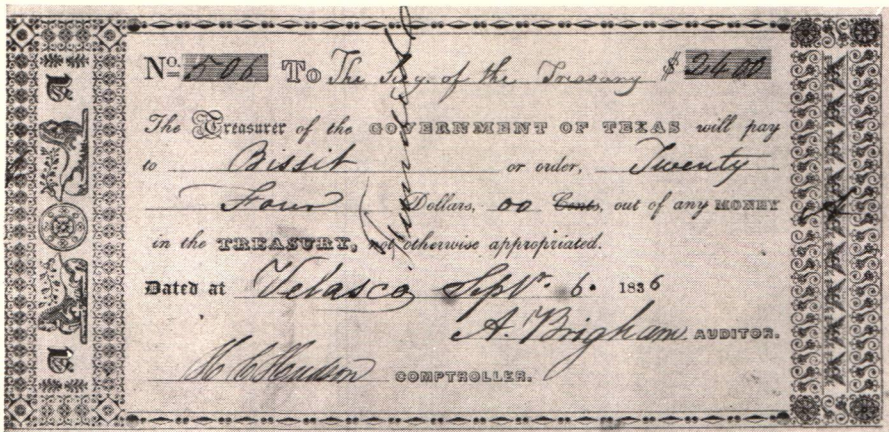 No. 506 To The Secy. of the Treasury $ 24 00
The Treasurer of the GOVERNMENT OF TEXAS will pay
to Bissit or order, Twenty
Four Dollars, 00 Cents, out of any MONEY
in the TREASURY, not otherwise appropriated.
Dated at Velasco Sept. 6. 1836
A. Brigham AUDITOR.
H C Hudson COMPTROLLER.